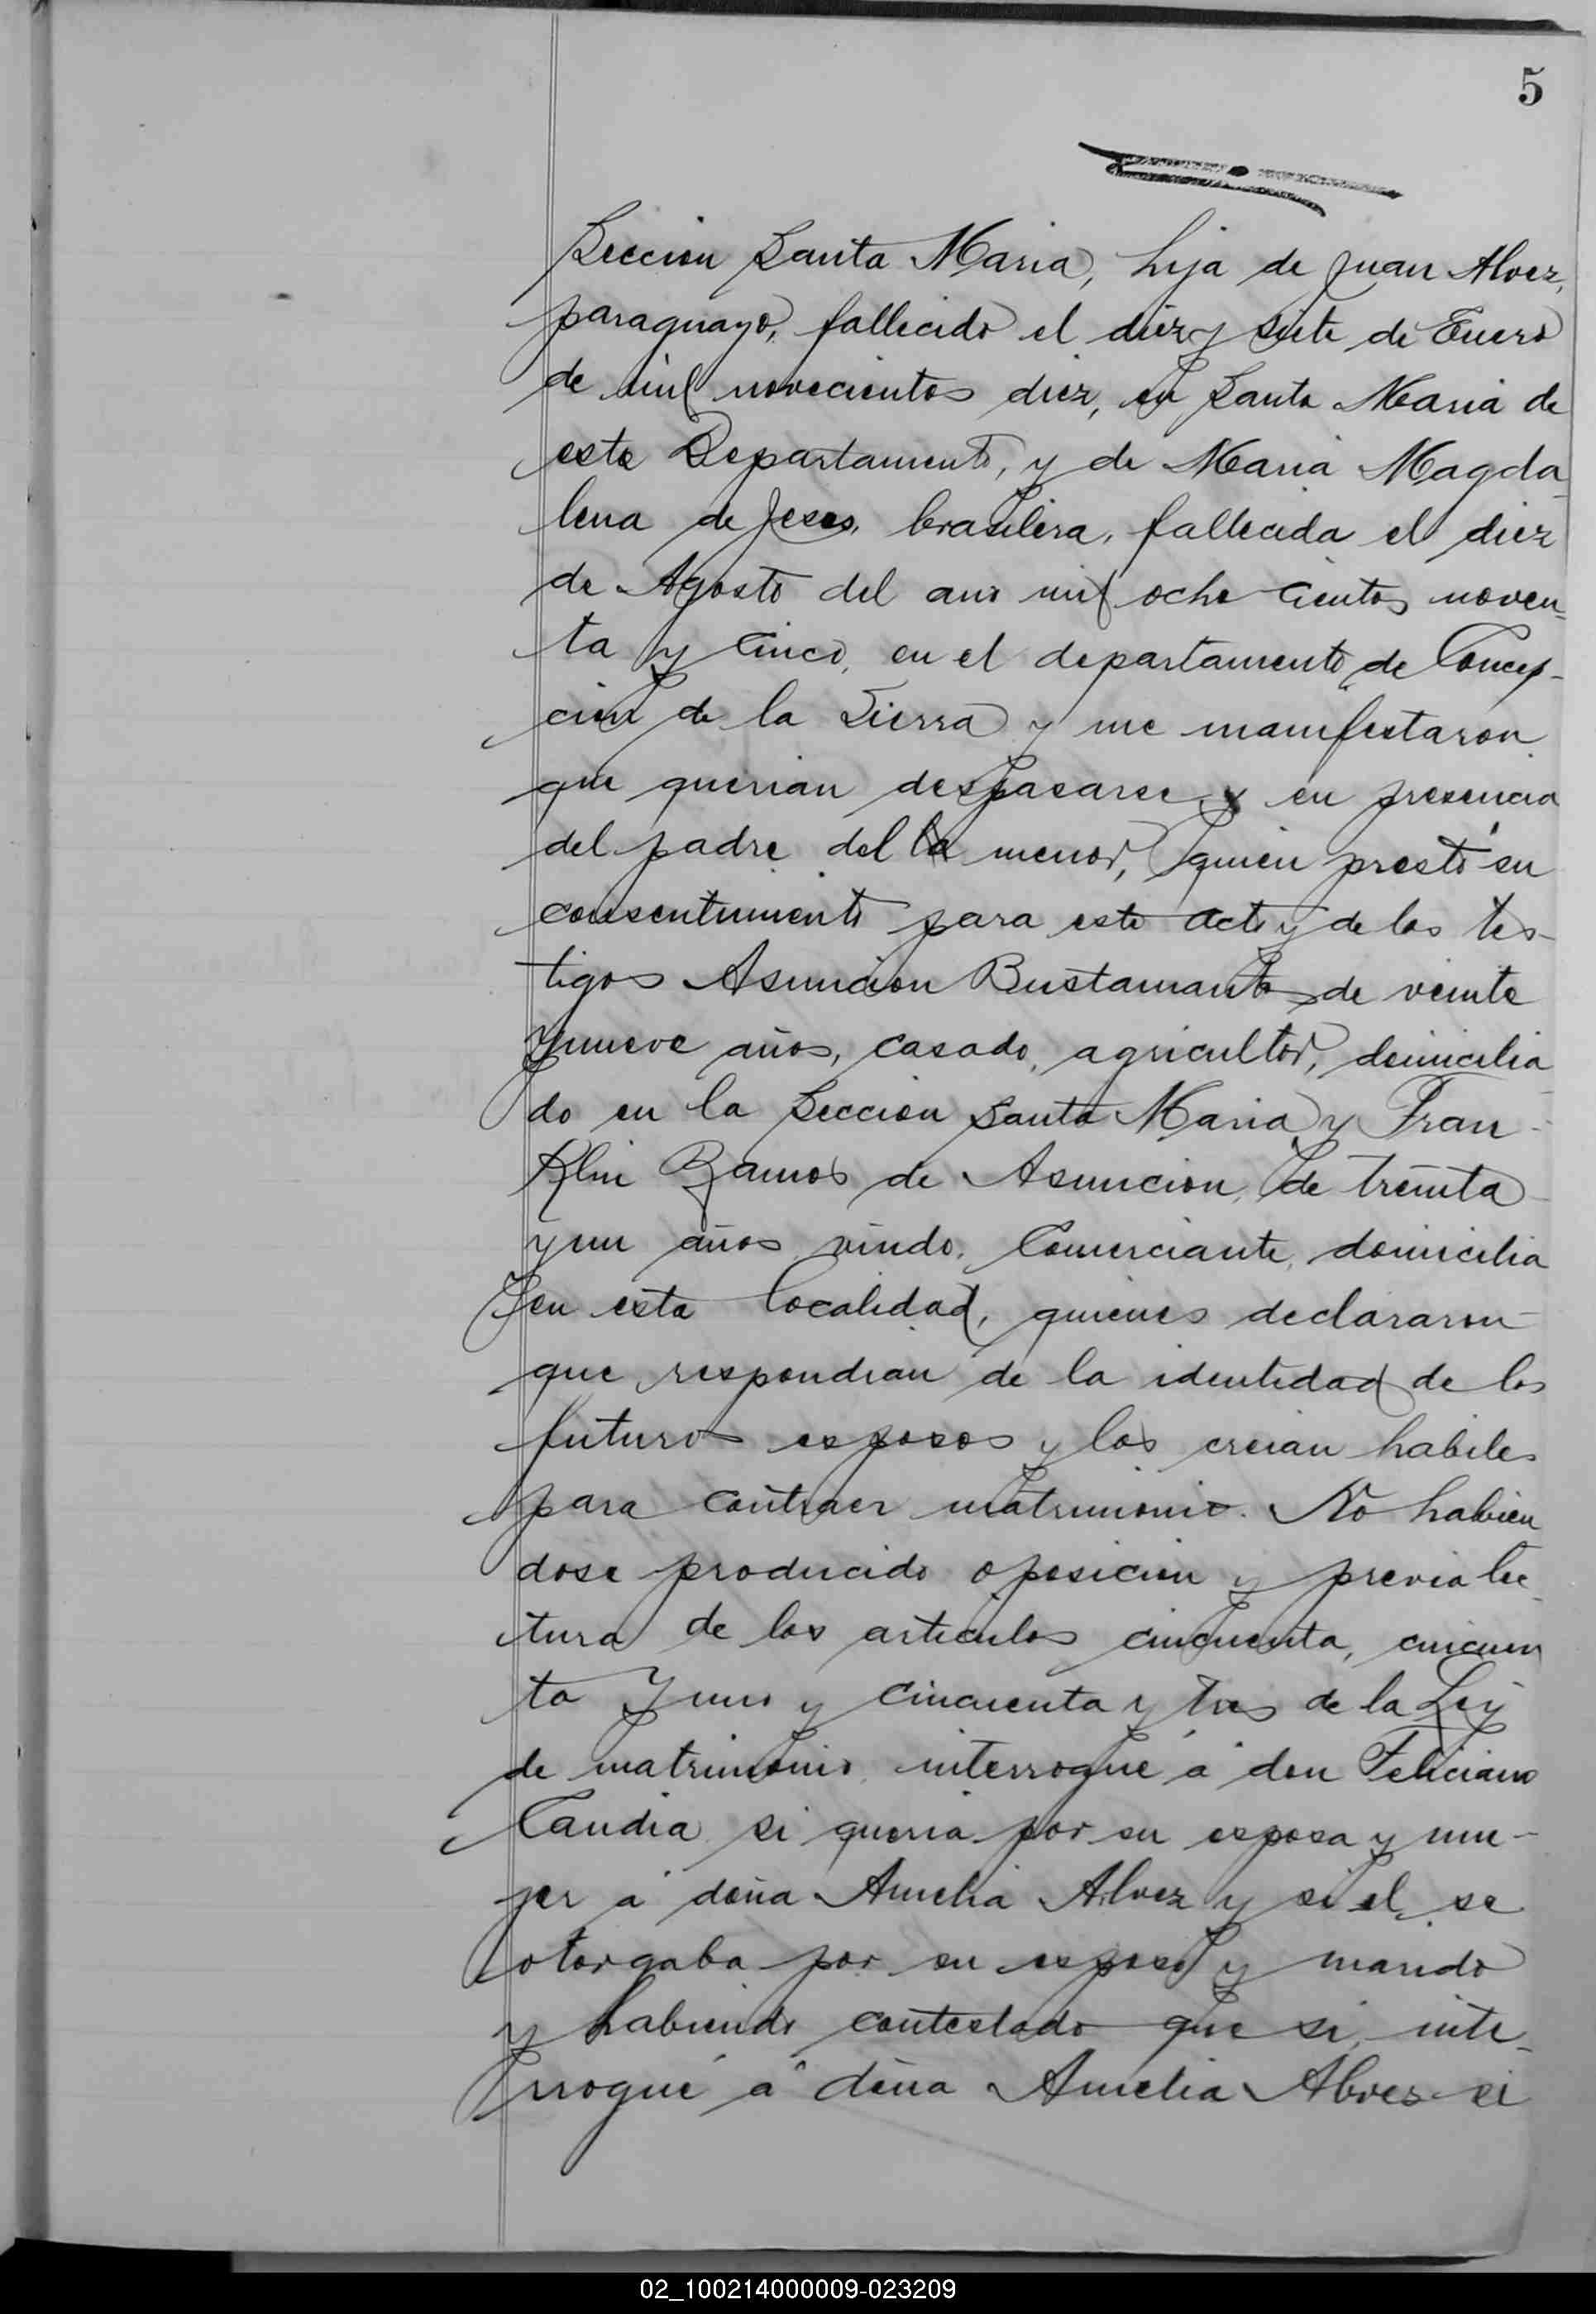 5
Seccion Santa Maria, hija de Juan Alvez,
paraguayo, fallecido el diez y siete de Enero
de mil novecientos diez, en Santa Maria de
este Departamento, y de Maria Magda
lena de Jesus, brasilera, fallecida el diez
de Agosto del año mil ocho cientos noven
ta y cinco, en el departamento de Concep-
cion de la Sierra y me manifestaron
que querian desposarse y en presencia
del padre del la menor, quien prestó su
consentimiento para este acto y de los tes-
tigos Asuncion Bustamante de veinte
y nueve años, casado, agricultor, domicilia
do en la Seccion Santa Maria y Fran-
klin Ramos de Asuncion, de treinta
y un años viudo, Comerciante, domicilia
en esta localidad, quienes declararon
que respondian de la identidad de los
futuros esposos y los creian habiles
para contraer matrimonio. No habien
dose producido oposicion y previa lec
tura de los articulos cincuenta, cincuen
ta y uno y cincuenta y tres de la Ley
de matrimonio, interrogué á don Feliciano
Candia si queria por su esposa y mu-
jer á doña Amelia Alvez y si el se
otorgaba por su esposo y marido
y habiendo contestado que si, inte-
rrogué á doña Amelia Alvez si
02_100214000009-023209